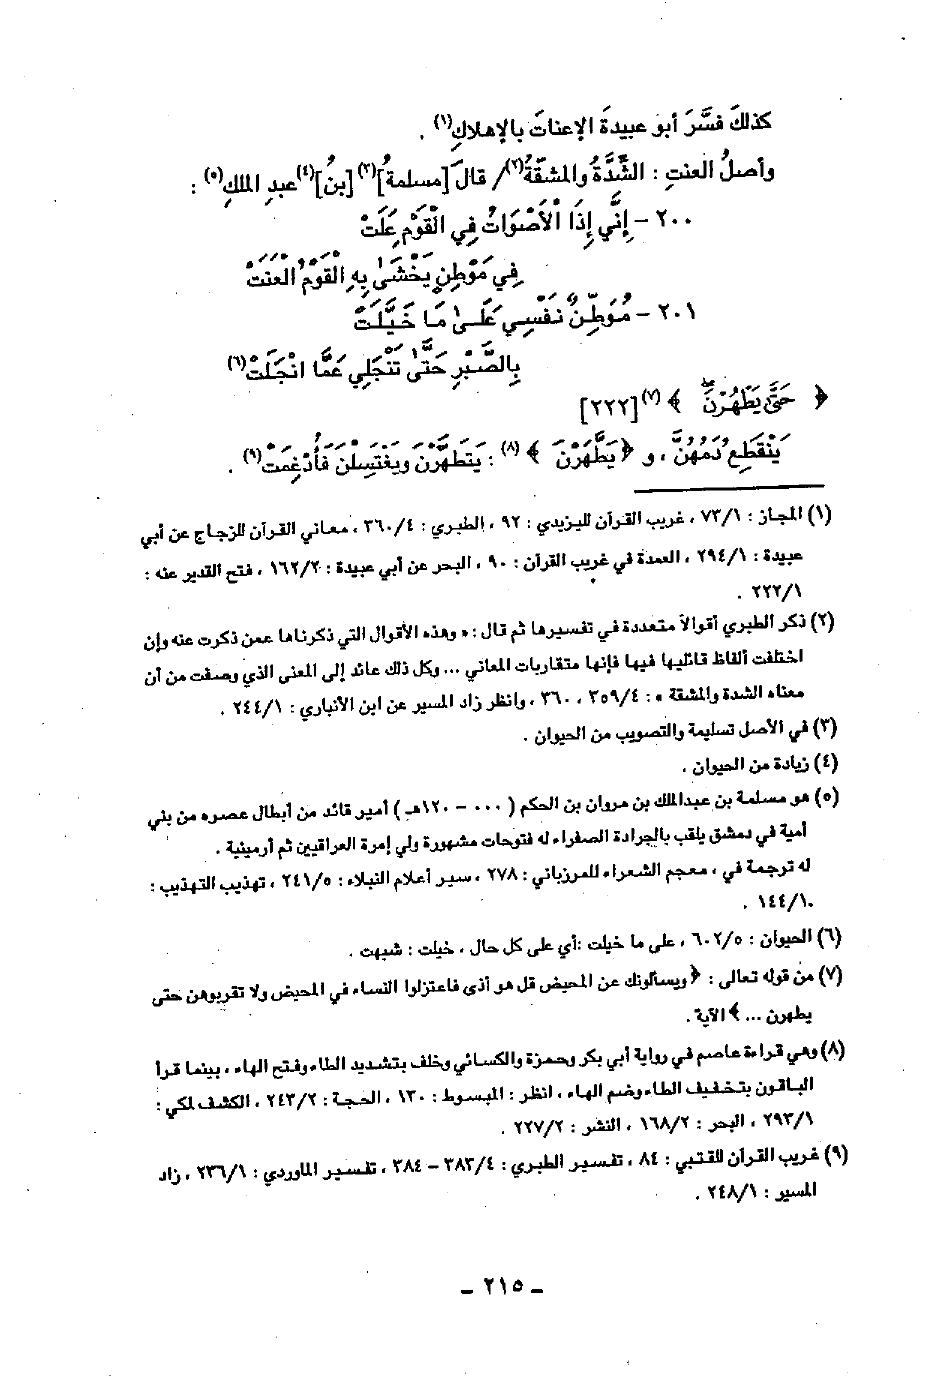 كذلكَ فسَّرَ أبو عبيدةَ الإعناتَ بالإهلاكِ(١) .
وأصلُ العنتِ : الشَّدَّةُ والمشقّةُ(٢)/ قالَ [مسلمةُ](٣) [بنُ](٤) عبدِ الملكِ(٥) :
٢٠٠ – إِنَّي إِذَا الْأَصْوَاتُ فِي الْقَوْمِ عَلَتْ
فِي مَوْطِنٍ يَخْشَىٰ بِهِ الْقَوْمُ الْعَنَتْ
٢٠١ – مُوَطِّنٌ نَفْسِي عَلَىٰ مَا خَيَّلَتْ
بِالصَّبْرِ حَتَّىٰ تَنْجَلِي عَمَّا انْجَلَتْ(٦)
﴿ حَتَّىٰ يَطْهُرْنَ ﴾(٧) [٢٢٢]
يَنْقَطِع دَمُهُنَّ ، و ﴿ يَطَّهَرْنَ ﴾(٨) : يَتَطَهَّرْنَ ويَغْتَسِلْنَ فَأُدْغِمَتْ(٩) .
(١) المجاز : ٧٣/١ ، غريب القرآن لليزيدي : ٩٢ ، الطبري : ٣٦٠/٤ ، معاني القرآن للزجاج عن أبي
عبيدة : ٢٩٤/١ ، العمدة في غريب القرآن : ٩٠ ، البحر عن أبي عبيدة : ١٦٢/٢ ، فتح القدير عنه :
٢٢٢/١ .
(٢) ذكر الطبري أقوالاً متعددة في تفسيرها ثم قال : « وهذه الأقوال التي ذكرناها عمن ذكرت عنه وإن
اختلفت ألفاظ قائليها فيها فإنها متقاربات المعاني ... وكل ذلك عائد إلى المعنى الذي وصفت من أن
معناه الشدة والمشقة » : ٣٥٩/٤ ، ٣٦٠ ، وانظر زاد المسير عن ابن الأنباري : ٢٤٤/١ .
(٣) في الأصل تسليمة والتصويب من الحيوان .
(٤) زيادة من الحيوان .
(٥) هو مسلمة بن عبدالملك بن مروان بن الحكم ( ٠٠٠ – ١٢٠هـ ) أمير قائد من أبطال عصره من بني
أمية في دمشق يلقب بالجرادة الصفراء له فتوحات مشهورة ولي إمرة العراقيين ثم أرمينية .
له ترجمة في ، معجم الشعراء للمرزباني : ٢٧٨ ، سير أعلام النبلاء : ٢٤١/٥ ، تهذيب التهذيب :
١٤٤/١٠ .
(٦) الحيوان : ٦٠٢/٥ ، على ما خيلت : أي على كل حال ، خيلت : شبهت .
(٧) من قوله تعالى : ﴿ ويسألونك عن المحيض قل هو أذى فاعتزلوا النساء في المحيض ولا تقربوهن حتى
يطهرن ... ﴾ الآية .
(٨) وهي قراءة عاصم في رواية أبي بكر وحمزة والكسائي وخلف بتشديد الطاء وفتح الهاء ، بينما قرأ
الباقون بتخفيف الطاء وضم الهاء ، انظر : المبسوط : ١٣٠ ، الحجة : ٢٤٣/٢ ، الكشف لمكي :
٢٩٣/١ ، البحر : ١٦٨/٢ ، النشر : ٢٢٧/٢ .
(٩) غريب القرآن للقتبي : ٨٤ ، تفسير الطبري : ٣٨٣/٤ – ٣٨٤ ، تفسير الماوردي : ٢٣٦/١ ، زاد
المسير : ٢٤٨/١ .
ـ ٢١٥ ـ